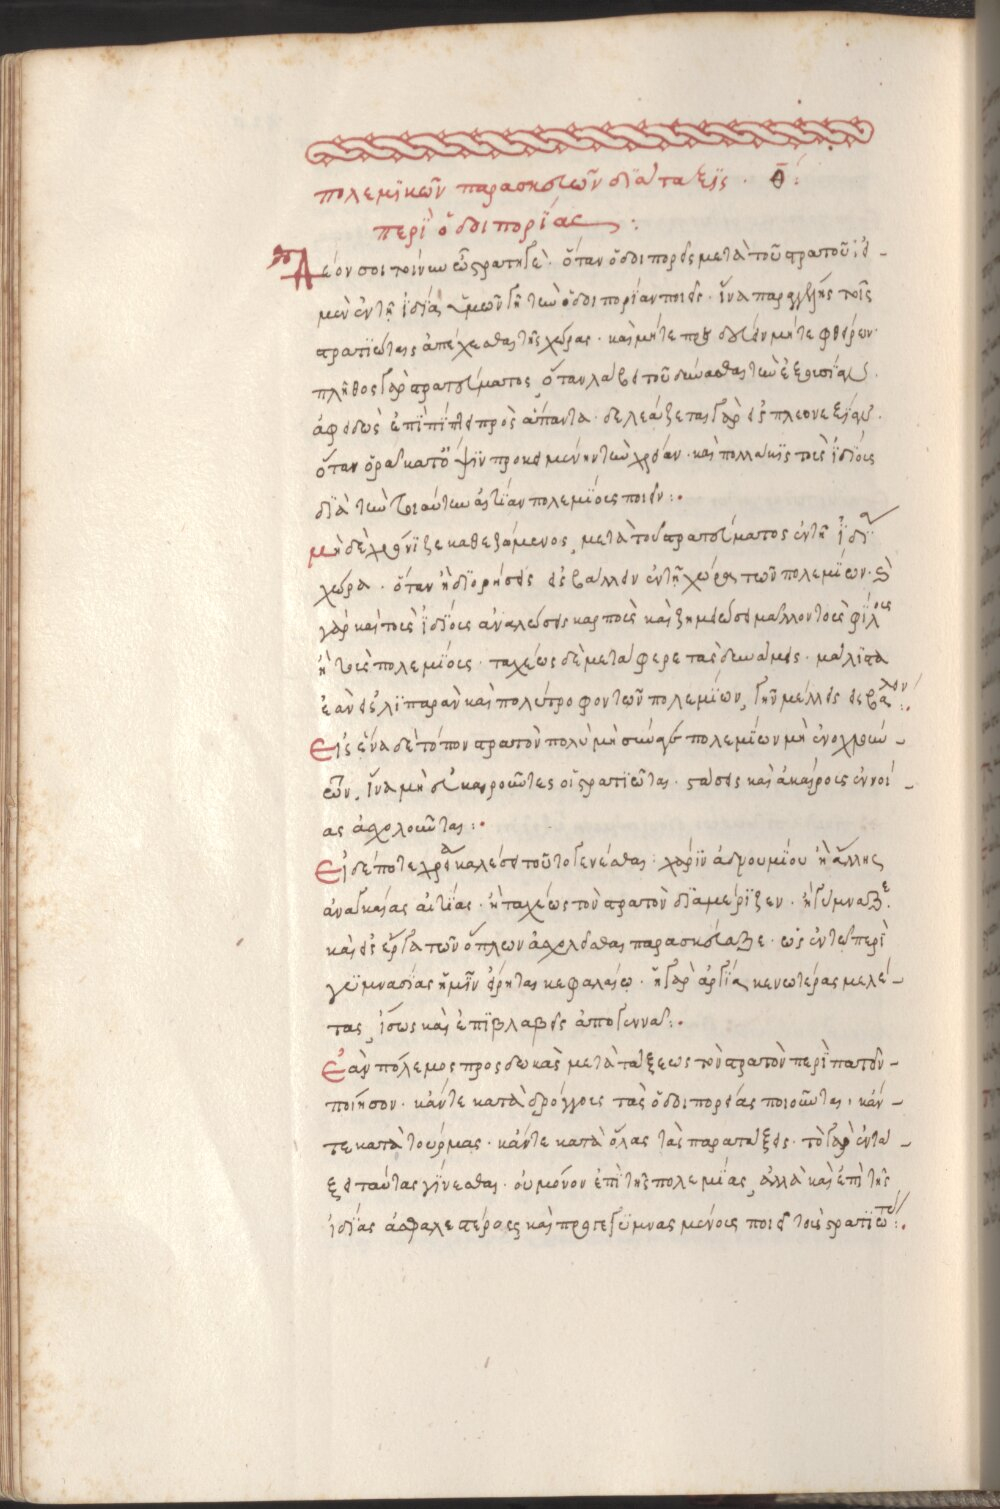 πολεμικῶν παρασκευῶν διάταξις · θ̄:
περὶ ὁδοιπορίας :
Δέον σοι τοίνυν ὦ στρατηγὲ · ὅταν ὁδοιπορεῖς μετὰ τοῦ στρατοῦ · εἰ
μὲν ἐν τῇ ἰδίᾳ ἡμῶν γῇ τὴν ὁδοιπορίαν ποιεῖς · ἵνα παραγγείλῃς τοῖς
στρατιώταις ἀπέχεσθαι τῆς χώρας · καὶ μήτε πραιδεύειν μήτε φθείρειν ·
πλῆθος γὰρ στρατεύματος, ὅταν λάβει τοῦ δύνασθαι τὴν ἐξουσίαν ·
ἀφειδῶς ἐπιπίπτει πρὸς ἅπαντα · δελεάζεται γὰρ εἰς πλεονεξίαν ·
ὅταν ὁρᾶ κατ' ὄψιν προκειμένην τὴν χρείαν · καὶ πολλάκις τοὺς ἰδίους
διὰ τὴν τοιαύτην αἰτίαν πολεμίους ποιεῖν :·
μὴ δὲ χρόνιζε καθεζόμενος, μετὰ τοῦ στρατεύματος ἐν τῇ ἰδίᾳ
χώρα · ὅταν ᾖ διορήσεις εἰσβάλλειν ἐν τῇ χώρα τῶν πολεμίων ·
γὰρ καὶ τοὺς ἰδίους ἀναλώσεις καρποὺς καὶ ζημιώσει μᾶλλον τοὺς φίλους
ἢ τοὺς πολεμίους · ταχέως δὲ μετάφερε τὰς δυνάμεις · μάλιστα
ἐὰν εἰ λιπαρὰν καὶ πολύτροφον τῶν πολεμίων, γῆν μέλλεις εἰσβαλεῖν :·
Εἰς ἕνα δὲ τόπον στρατὸν πολὺ μὴ σύναγε πολεμίων μὴ ἐνοχλούν-
των, ἵνα μὴ εὐκαιροῦντες οἱ στρατιῶται · στάσεις καὶ ἀκαίρους ἐννοί-
ας ἀσχολοῦνται :·
Εἰ δέ ποτε χρεία καλέσει τοῦτο γενέσθαι · χάριν ἀδνουμίου ἢ ἄλλης
ἀναγκαίας αἰτίας · ἢ ταχέως τὸν στρατὸν διαμέριζεν · ἢ γύμναζε ·
καὶ εἰς ἔργα τῶν ὅπλων ἀσχολεῖσθαι παρασκεύαζε · ὡς ἐν τῷ περὶ
γυμνασίας ἡμῖν εἴρηται κεφαλαίῳ · ἡ γὰρ ἀργία, κενωτέρας μελέ-
τας, ἴσως καὶ ἐπιβλαβεῖς ἀπογεννᾶ :·
Ἐὰν πόλεμος προσδοκᾶς μετὰ τάξεως τὸν στρατὸν περιπατεῖν
ποίησον · κἄντε κατὰ δρόγγους τὰς ὁδοιπορείας ποιοῦνται · κἄν-
τε κατὰ τούρμας · κἄντε κατὰ ὅλας τὰς παρατάξεις · τὸ γὰρ ἐν τά-
ξει ταύτας γίνεσθαι · οὐ μόνον ἐπὶ τῆς πολεμίας, ἀλλὰ καὶ ἐπὶ τῆς
ἰδίας ἀσφαλεστέρους καὶ προγεγυμνασμένους ποιεῖ τοὺς στρατιώτας :·